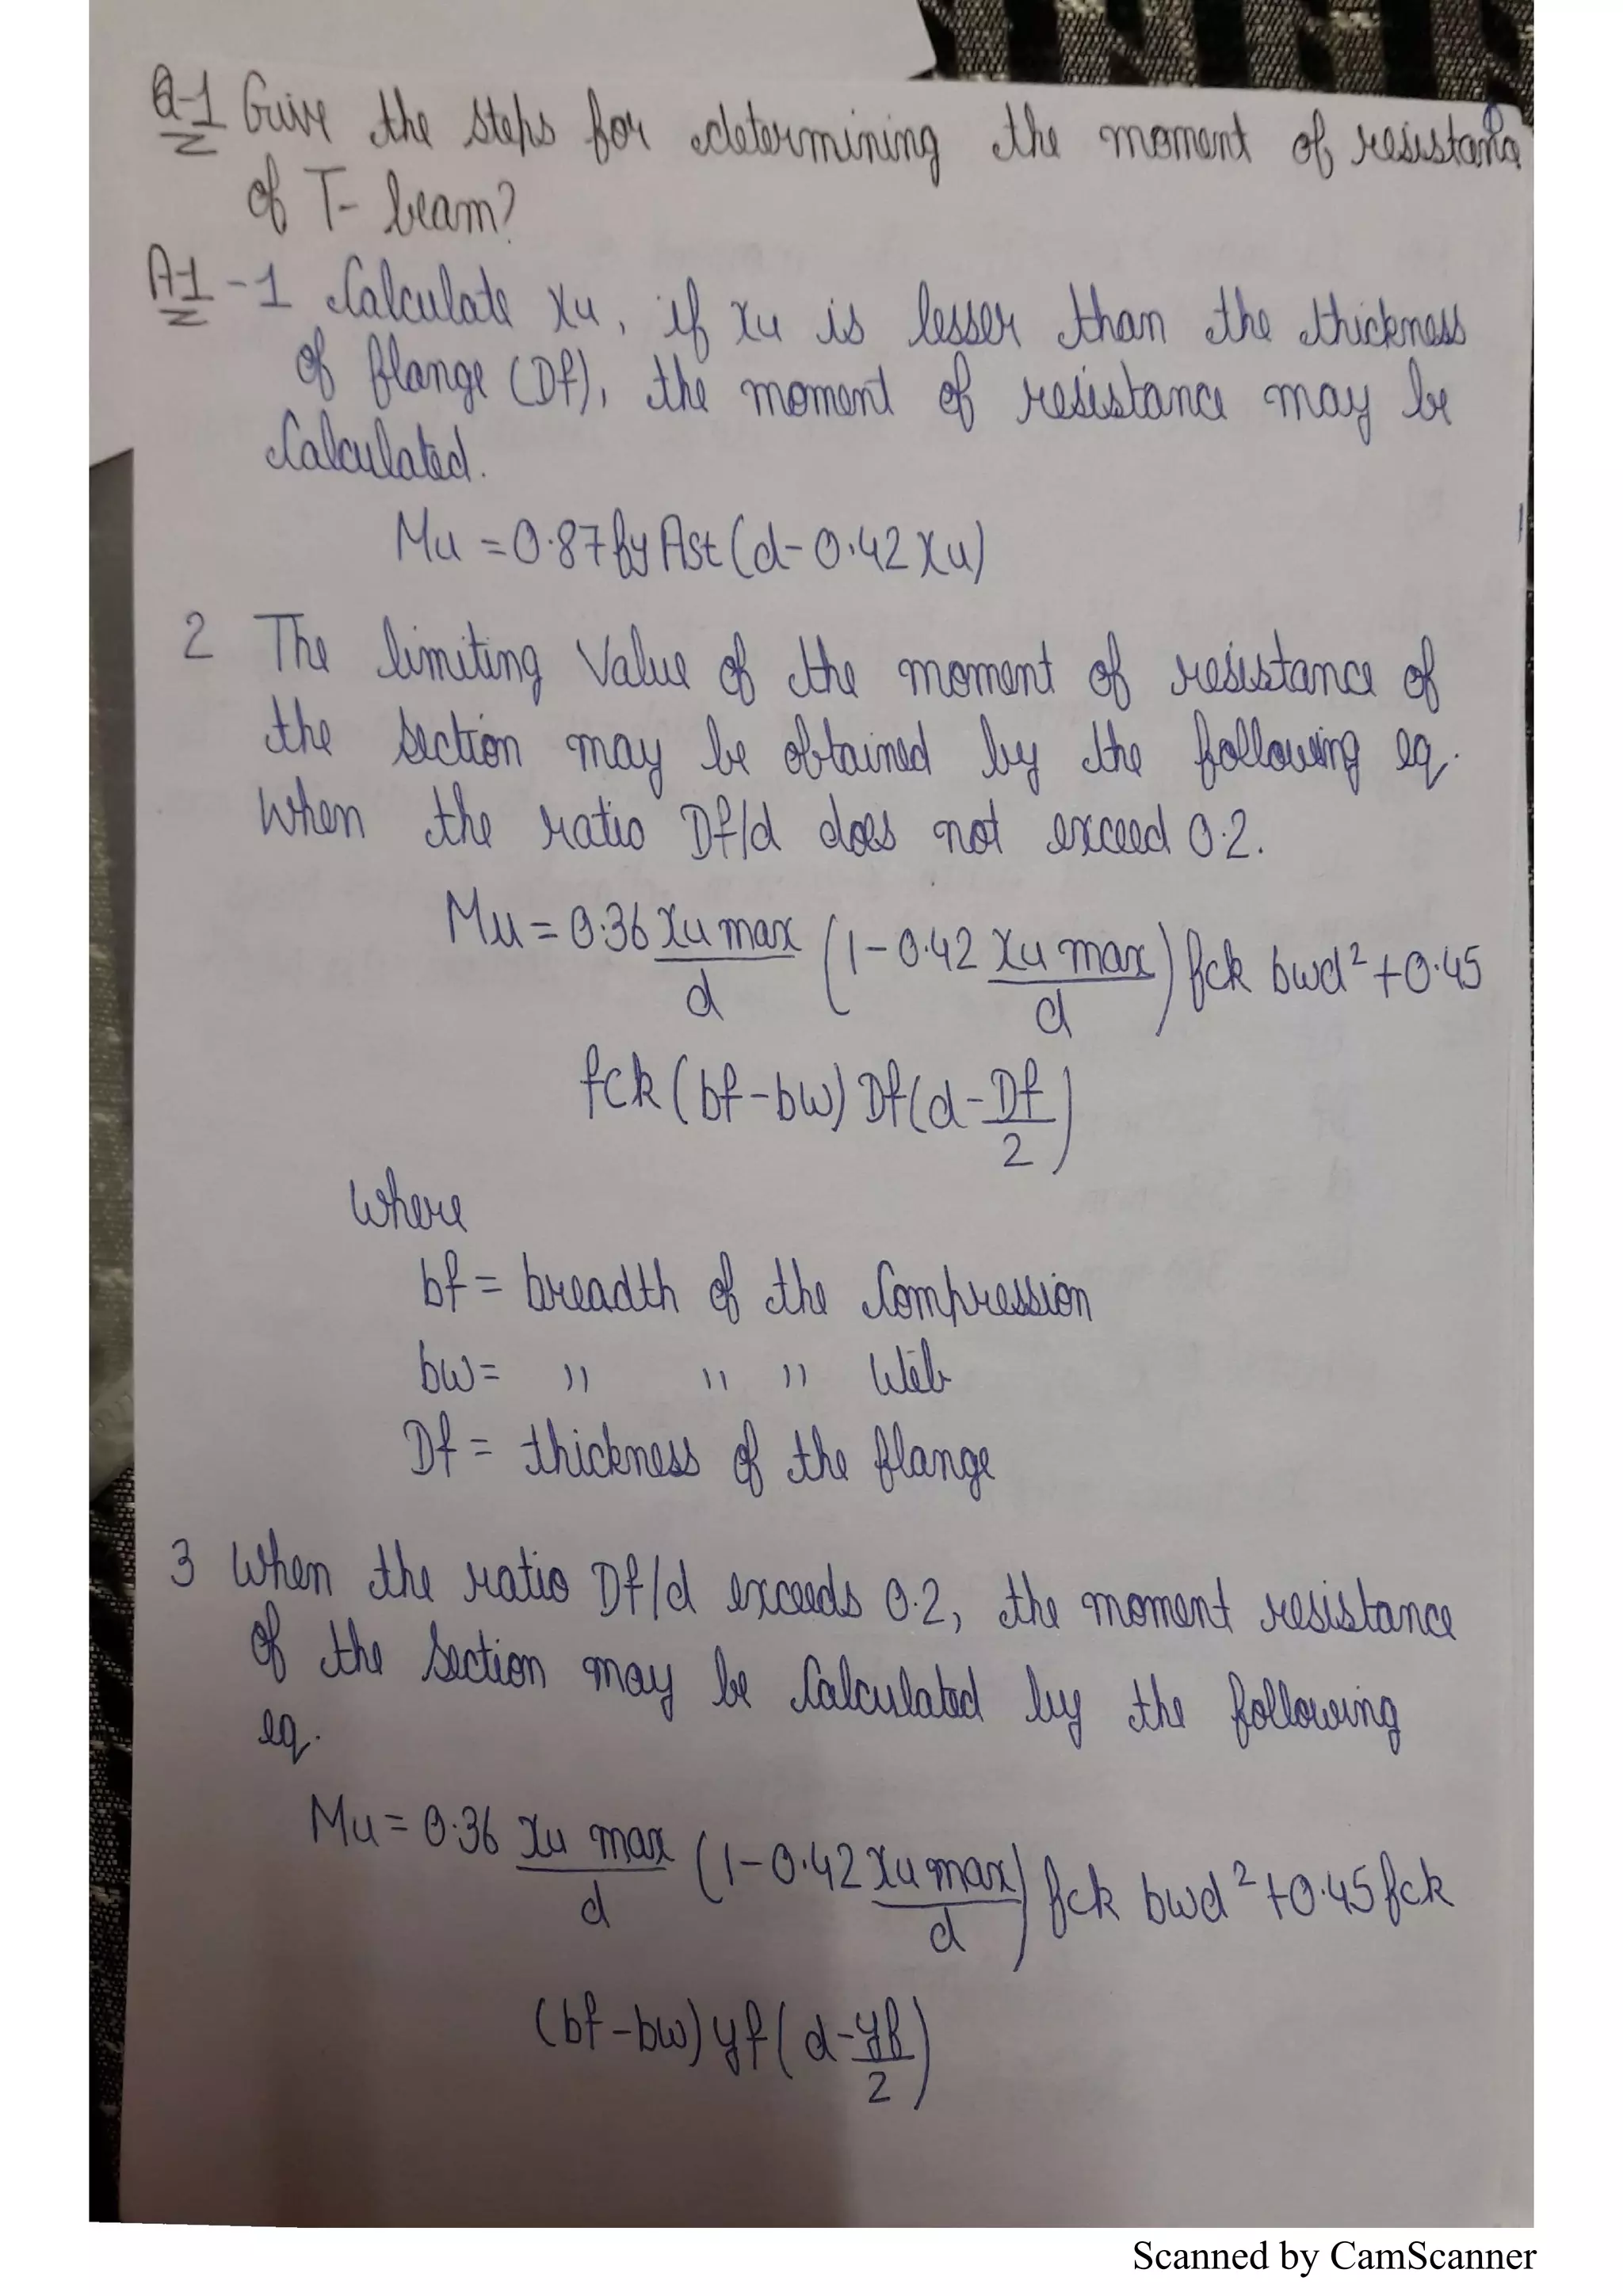 Q-1 Give the steps for determining the moment of resistance
of T- beam?
A1 -1 Calculate Xu, if Xu is lesser than the thickness
of flange (Df), the moment of resistance may be
Calculated.
Mu = 0.87 fy Ast (d - 0.42 Xu)
2 The limiting Value of the moment of resistance of
the section may be obtained by the following eq.
When the ratio Df/d does not exceed 0.2.
Mu = 0.36 Xu max/d (1 - 0.42 Xu max/d) fck bwd² + 0.45
fck (bf - bw) Df (d - Df/2)
Where
bf = breadth of the Compression
bw = " " " Web
Df = thickness of the flange
3 When the ratio Df/d exceeds 0.2, the moment resistance
of the Section may be Calculated by the following
eq.
Mu = 0.36 Xu max/d (1 - 0.42 Xu max/d) fck bwd² + 0.45 fck
(bf - bw) yf (d - yf/2)
Scanned by CamScanner